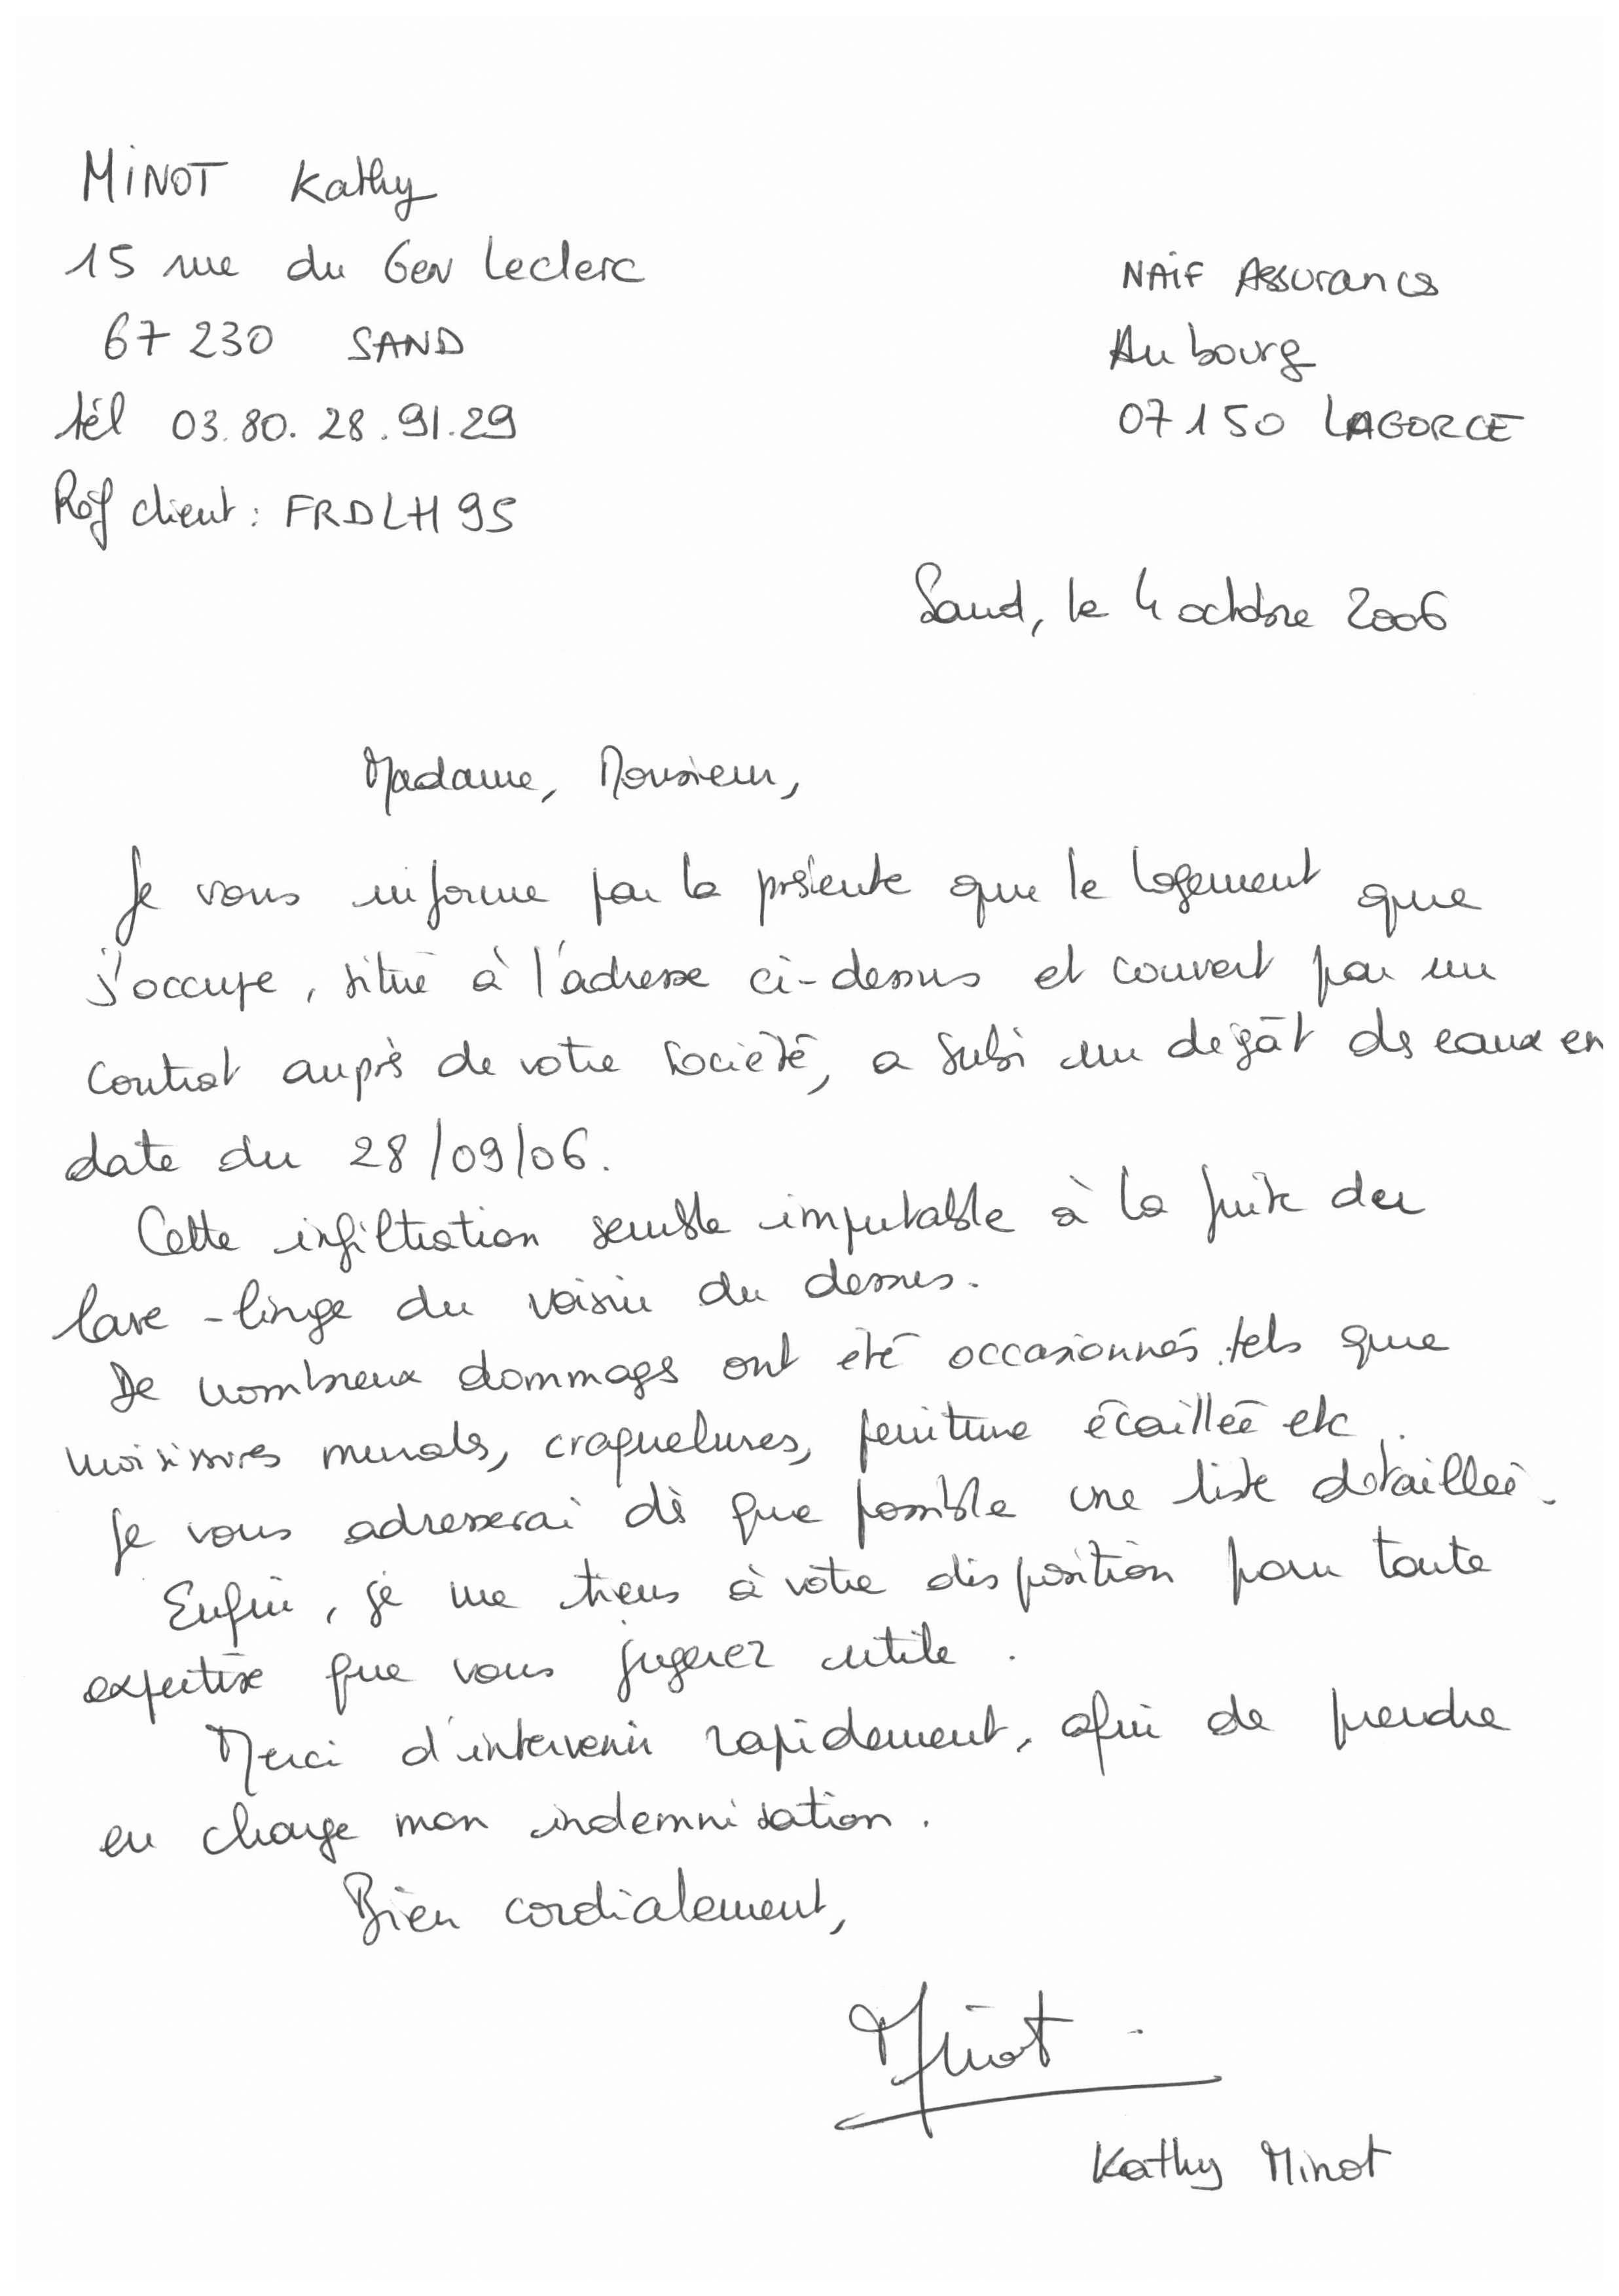 MINOT Kathy
15 rue du Gen Leclerc
67 230 SAND
tél 03.80.28.91.29
Réf client : FRDLH95
NAIF Assurances
Au bourg
07150 LAGORCE
Sand, le 4 octobre 2006
Madame, Monsieur,
Je vous informe par la présente que le logement que
j'occupe, situé à l'adresse ci-dessus et couvert par un
contrat auprès de votre société, a subi un dégât des eaux en
date du 28/09/06.
Cette infiltration semble imputable à la fuite du
lave-linge du voisin du dessus.
De nombreux dommages ont été occasionnés tels que
moisissures murales, craquelures, peinture écaillée etc.
Je vous adresserai dès que possible une liste détaillée.
Enfin, je me tiens à votre disposition pour toute
expertise que vous jugerez utile.
Merci d'intervenir rapidement, afin de prendre
en charge mon indemnisation.
Bien cordialement,
Minot
Kathy Minot